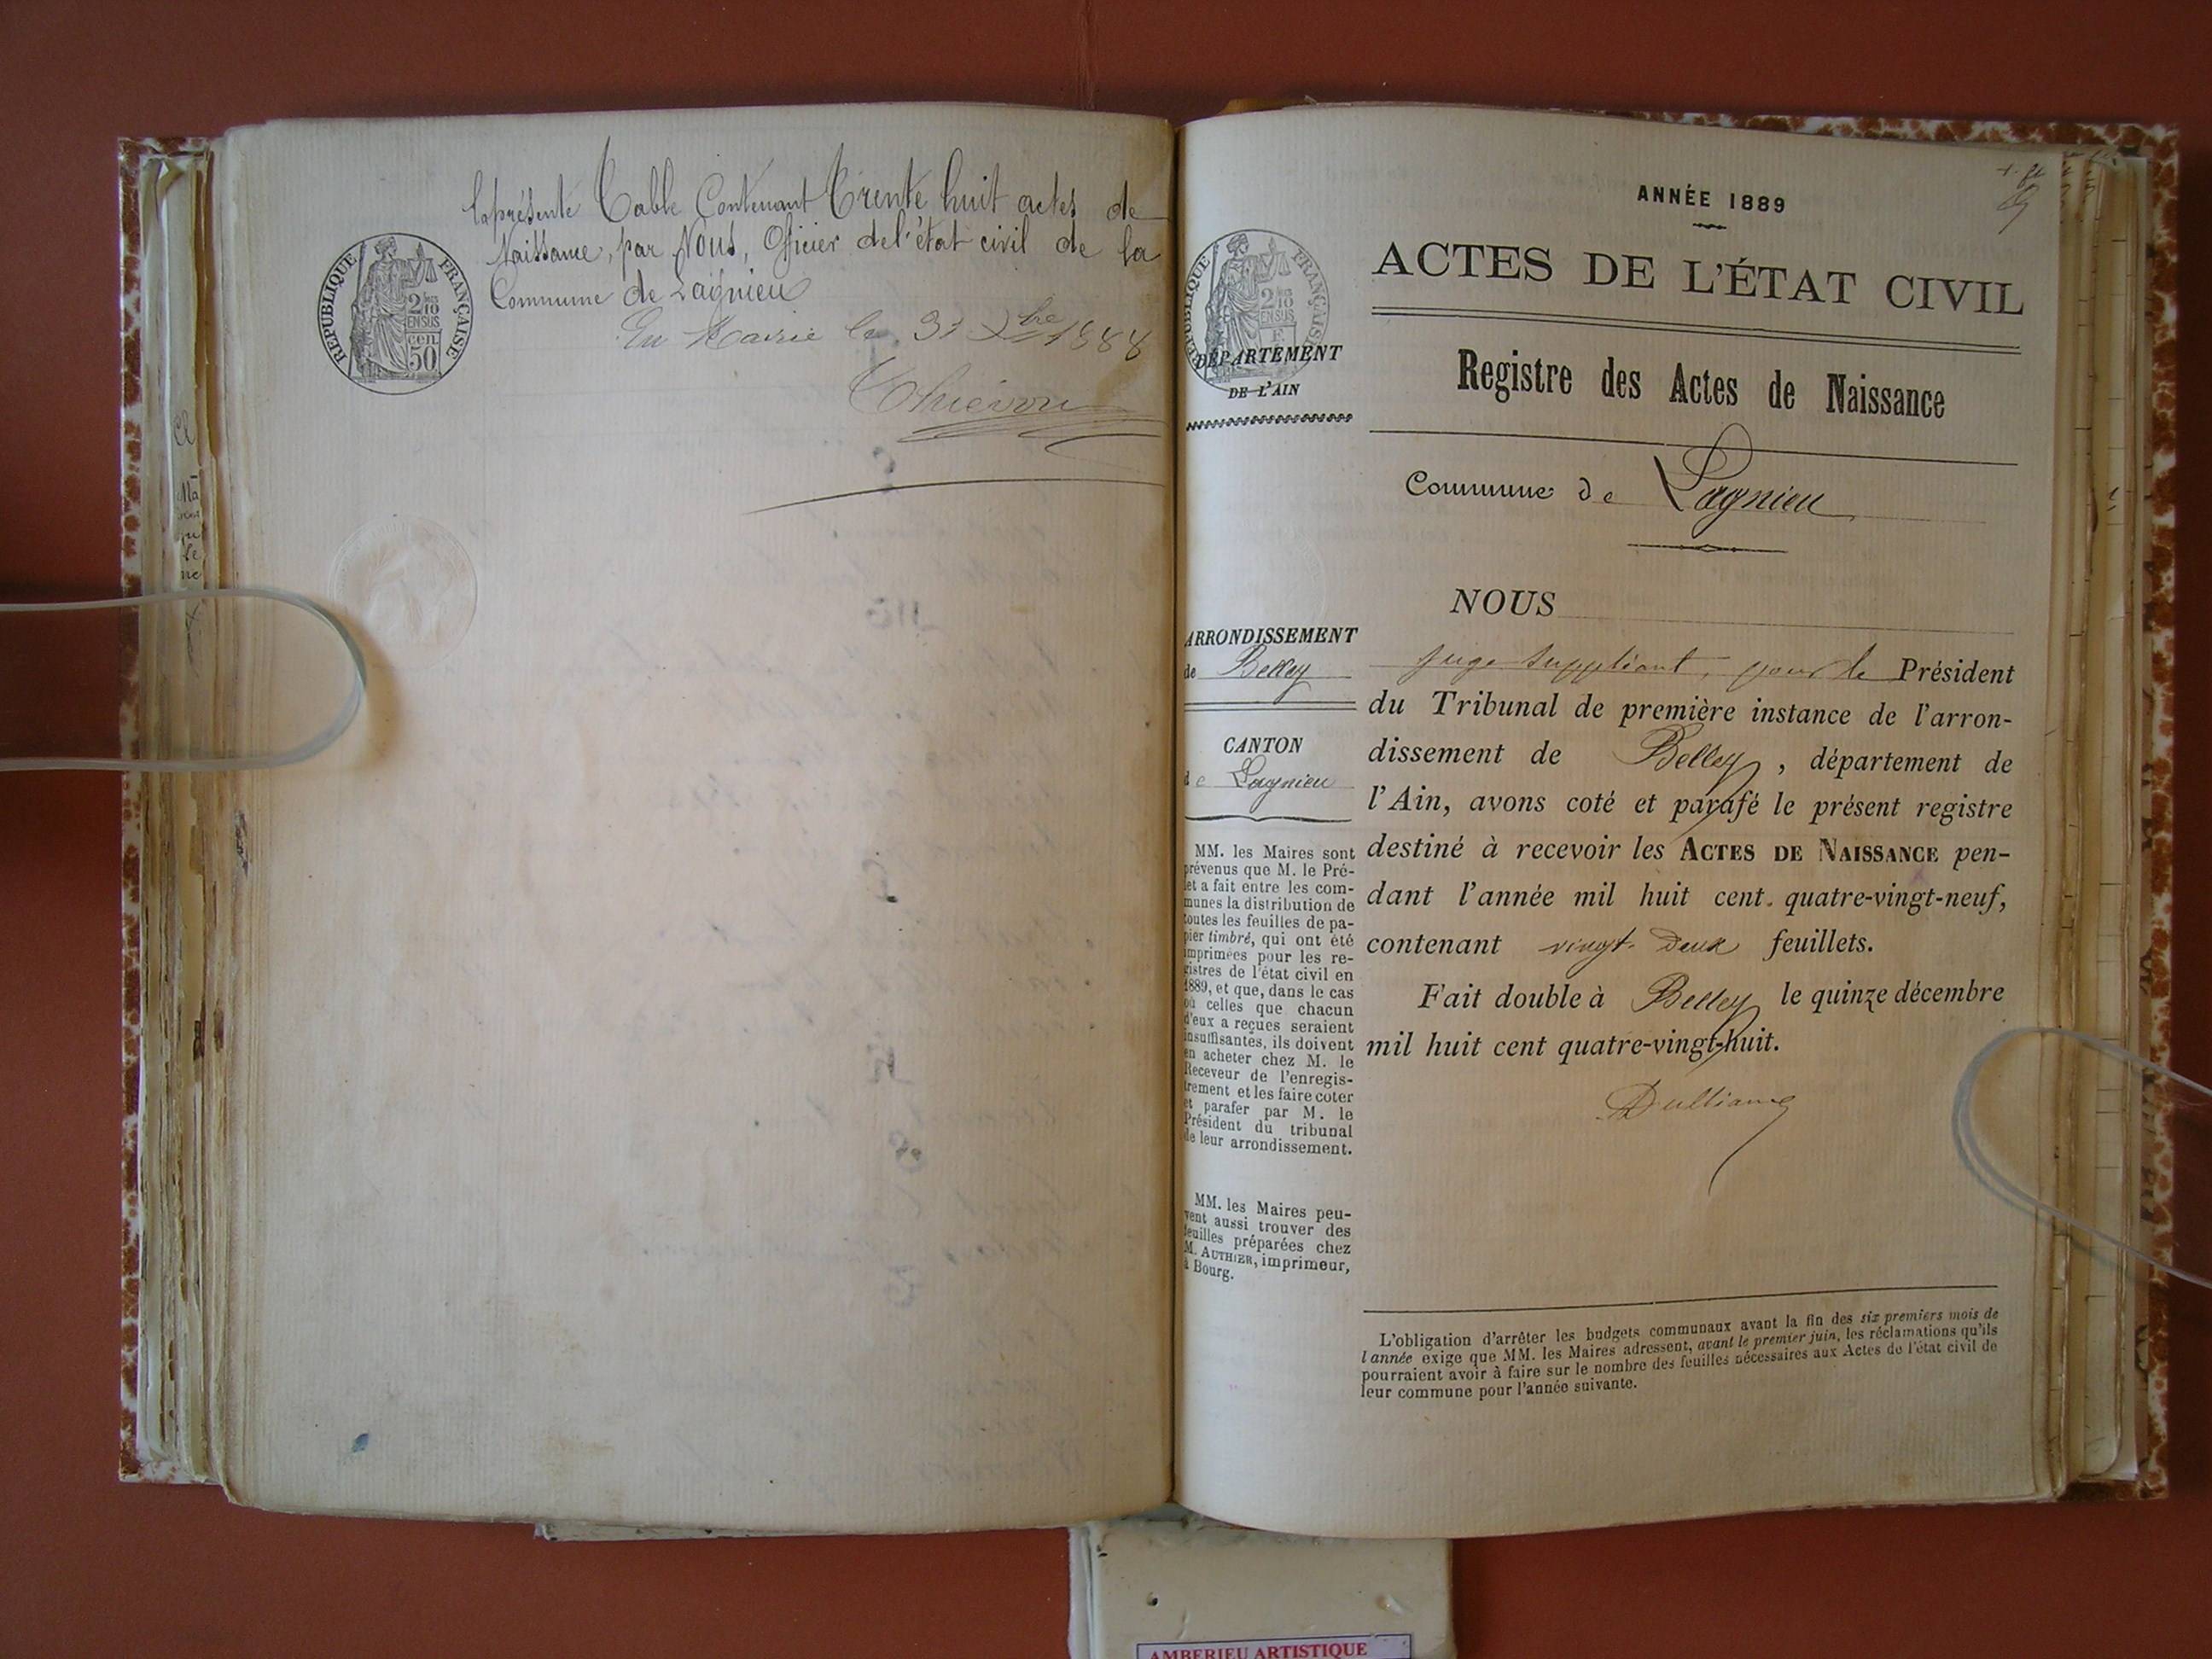 la présente Table Contenant Trente huit actes de
Naissance, par Nous, Officier de l'état civil de la
Commune de Lagnieu
En Mairie le 31 Xbre 1888
RÉPUBLIQUE FRANÇAISE
2/10
EN SUS
cen.
50
ANNÉE 1889
ACTES DE L'ÉTAT CIVIL
Registre des Actes de Naissance
Commune de Lagnieu
RÉPUBLIQUE FRANÇAISE
2/10
EN SUS
DÉPARTEMENT
DE L'AIN
ARRONDISSEMENT
de Belley
CANTON
de Lagnieu
MM. les Maires sont
prévenus que M. le Pré-
fet a fait entre les com-
munes la distribution de
toutes les feuilles de pa-
pier timbré, qui ont été
imprimées pour les re-
gistres de l'état civil en
1889, et que, dans le cas
où celles que chacun
d'eux a reçues seraient
insuffisantes, ils doivent
en acheter chez M. le
Receveur de l'enregis-
trement et les faire coter
et parafer par M. le
Président du tribunal
de leur arrondissement.
MM. les Maires peu-
vent aussi trouver des
feuilles préparées chez
M. AUTHIER, imprimeur,
à Bourg.
NOUS
juge suppléant, pour le Président
du Tribunal de première instance de l'arron-
dissement de Belley, département de
l'Ain, avons coté et parafé le présent registre
destiné à recevoir les ACTES DE NAISSANCE pen-
dant l'année mil huit cent. quatre-vingt-neuf,
contenant vingt-deux feuillets.
Fait double à Belley le quinze décembre
mil huit cent quatre-vingt-huit.
L'obligation d'arrêter les budgets communaux avant la fin des six premiers mois de
l'année exige que MM. les Maires adressent, avant le premier juin, les réclamations qu'ils
pourraient avoir à faire sur le nombre des feuilles nécessaires aux Actes de l'état civil de
leur commune pour l'année suivante.
AMBERIEU ARTISTIQUE